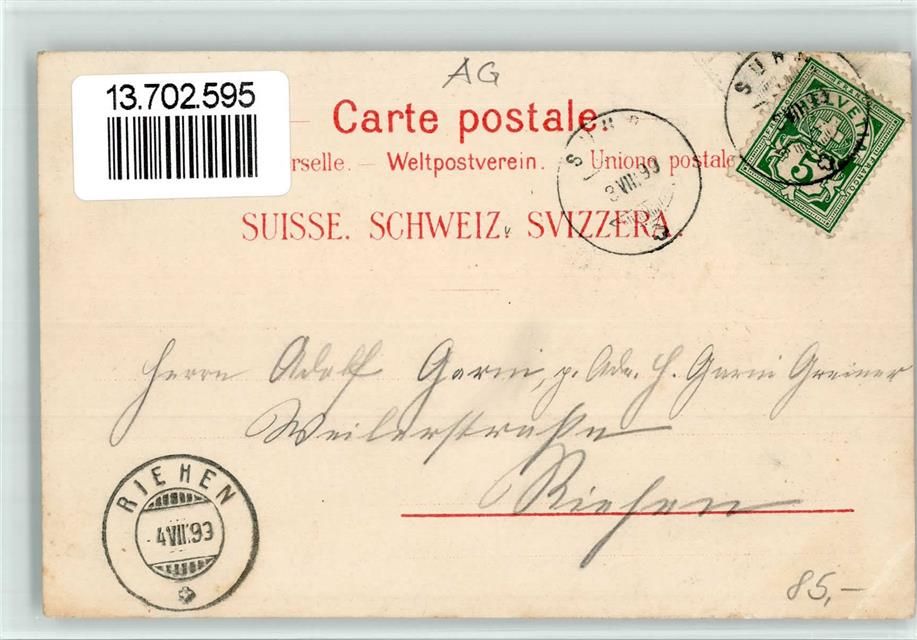 AG
13.702.595
Carte postale.
rselle. — Weltpostverein. — Unione postale
SUISSE. SCHWEIZ. SVIZZERA.
SUHR
3 VII 93
SUHR
HELVETIA
FRANCO
5
Herrn Adolf Garni, p. Adr. H. Garni Greiner
Weilerstraße
Riehen
RIEHEN
4 VII 93
85,-